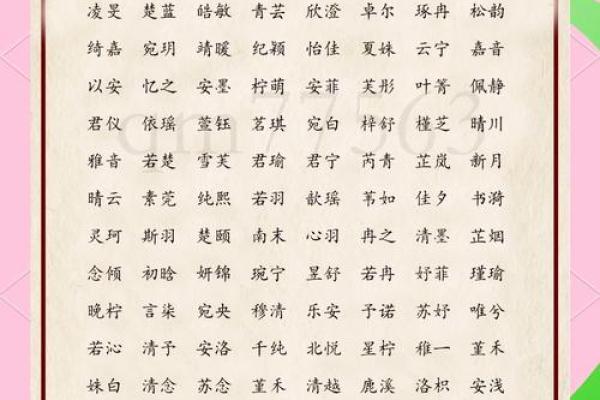 凌旻 楚蓝 皓敏 青芸 欣澄 卓尔 琢冉 松韵
绮嘉 宛玥 靖暖 纪颖 怡佳 夏妹 云宁 嘉音
以安 忆之 安墨 柠萌 安菲 芙彤 叶箐 佩静
君仪 依瑶 萱钰 茗琪 宛白 梓舒 槿芝 晴川
雅音 若楚 雪芙 君瑜 君宁 芮青 芷岚 新月
晴云 素莞 纯熙 若羽 歆瑶 苇如 佳夕 书漪
灵珂 斯羽 楚颐 南末 心羽 冉之 清墨 芷烟
念倾 初晗 妍锦 琬宁 昱舒 若冉 妤菲 瑾瑜
晚柠 言柒 宛央 穆清 乐安 予诺 苏妤 唯兮
若沁 清予 安洛 千纯 北悦 星柠 稚一 堇禾
妹白 清念 苏念 堇禾 清越 鹿溪 洛枳 安浅
qm77563